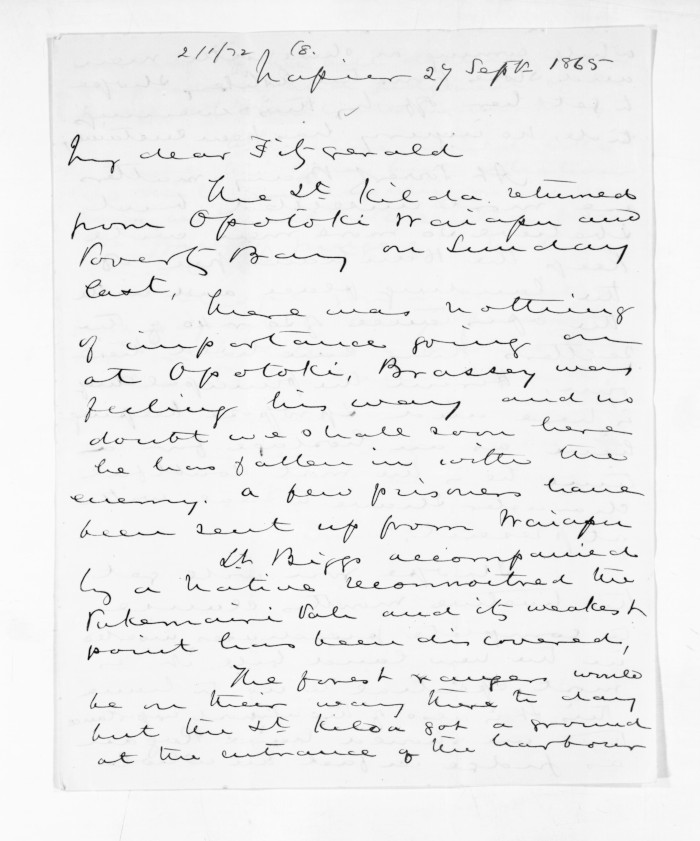 2/1/72 (8.
Napier 27 Sept 1865
My dear Fitzgerald
The St Kilda returned
from Opotoki Waiapu and
Poverty Bay on Sunday
last,
There was nothing
of importance going on
at Opotoki, Brassey was
feeling his way and no
doubt we shall soon here
he has fallen in with the
enemy. a few prisoners have
been sent up from Waiapu
Lt Biggs accompanied
by a Native reconnoitred the
Pukemaire Pah and its weakest
point has been discovered,
The forest rangers would
be on their way there to day
but the St Kilda got a ground
at the entrance of the harbour